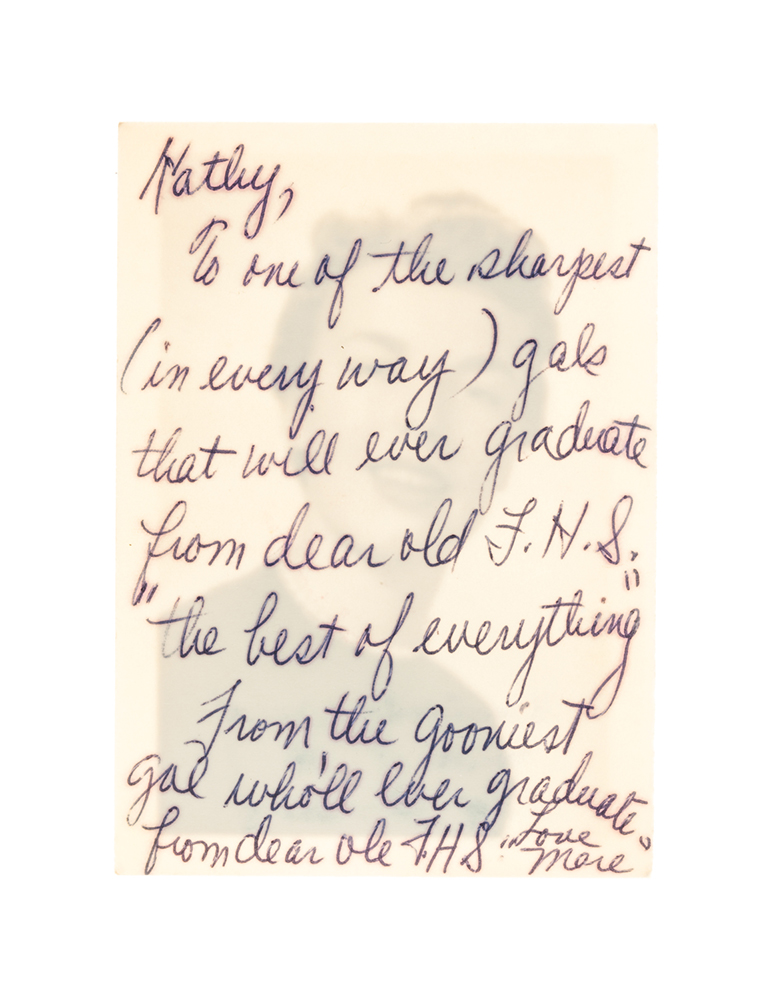 Kathy,
To one of the sharpest
(in every way) gals
that will ever graduate
from dear old F.H.S.
"the best of everything"
From the gooniest
gal who'll ever graduate
from dear ole FHS "Love
Mere"